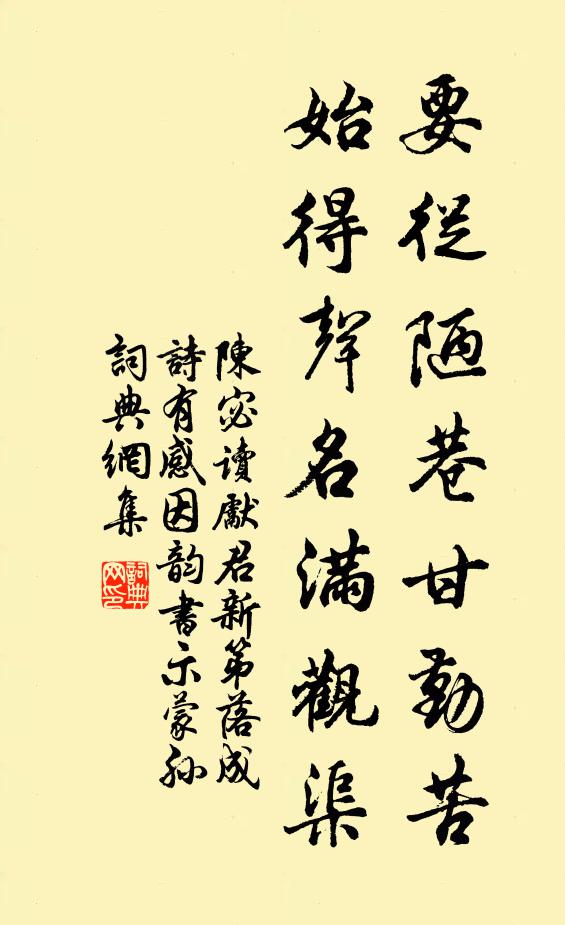 要從陋巷甘勤苦
始得聲名滿觀渠
陳宓讀獻君新第落成
詩有感因韵書示蒙孫
詞典網集
詞典网印